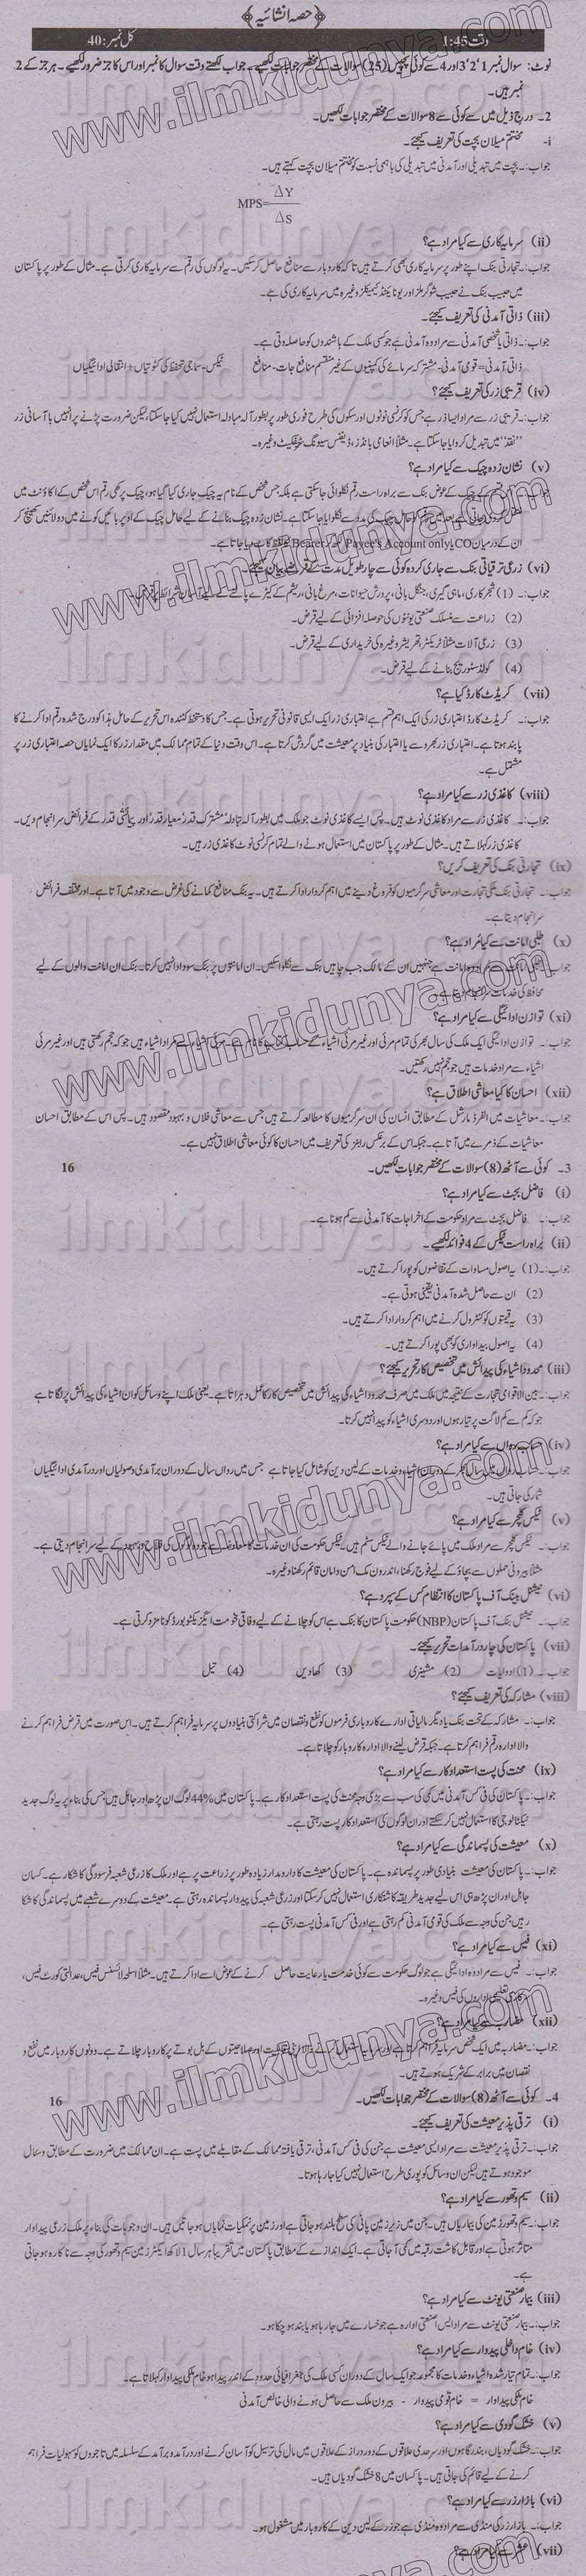 ﴿حصہ انشائیہ﴾
وقت 1:45 کل نمبر: 40
نوٹ: سوال نمبر 1 '2' 3 اور 4 سے کوئی پچیس (25) سوالات کے مختصر جوابات لکھیے۔ جواب لکھتے وقت سوال کا نمبر اور اس کا جز ضرور لکھیے۔ ہر جز کے 2
نمبر ہیں۔
2۔ درج ذیل میں سے کوئی سے 8 سوالات کے مختصر جوابات لکھیں۔
i- مختتم میلان بچت کی تعریف کیجئے۔
جواب:۔ بچت میں تبدیلی اور آمدنی میں تبدیلی کی باہمی نسبت کو مختتم میلان بچت کہتے ہیں۔
MPS= ΔY
ΔS
(ii) سرمایہ کاری سے کیا مراد ہے؟
جواب:۔ تجارتی بنک اپنے طور پر سرمایہ کاری بھی کرتے ہیں تاکہ کاروبار سے منافع حاصل کر سکیں۔ یہ لوگوں کی رقم سے سرمایہ کاری کرتی ہے۔ مثال کے طور پر پاکستان
میں حبیب بنک نے حبیب شوگر ملز اور یونائیٹڈ کیمیکلز وغیرہ میں سرمایہ کاری کی ہے۔
(iii) ذاتی آمدنی کی تعریف کیجئے۔
جواب:۔ ذاتی یا شخصی آمدنی سے مراد وہ آمدنی ہے جو کسی ملک کے باشندوں کو حاصل ہوتی ہے۔
ذاتی آمدنی= قومی آمدنی- مشترکہ سرمائے کی کمپنیوں کے غیر منقسم منافع جات- منافع ٹیکس- سماجی تحفظ کی کٹوتیاں+ انتقالی ادائیگیاں
(iv) قریبی زر کی تعریف کیجئے؟
جواب:۔ قریبی زر سے مراد ایسا زر ہے جس کو کرنسی نوٹوں اور سکوں کی طرح فوری طور پر بطور آلہ مبادلہ استعمال نہیں کیا جا سکتا، لیکن ضرورت پڑنے پر انہیں با آسانی زر
"نقد" میں تبدیل کروایا جا سکتا ہے۔ مثلاً انعامی بانڈز، ڈیفنس سیونگ سرٹیفکیٹ وغیرہ۔
(v) نشان زدہ چیک سے کیا مراد ہے؟
چیک کے عوض بنک سے براہ راست رقم نکلوائی جا سکتی ہے بلکہ جس شخص کے نام یہ چیک جاری کیا گیا ہو، چیک پر لکھی رقم اس شخص کے اکاؤنٹ میں
نکلوایا جا سکتا ہے۔ نشان زدہ چیک بنانے کے لیے حامل چیک کے اوپر بائیں کونے میں دو لائنیں کھینچ کر
ان کے درمیان CO یا Payee's Account only اور Bearer
(vi) زرعی ترقیاتی بنک سے جاری کردہ کوئی سے چار طویل مدت کے قرضے بیان کیجئے؟
جواب:۔ (1) شجرکاری، ماہی گیری، جنگل بانی، پرورش حیوانات، مرغ بانی، ریشم کے کیڑے پالنے کے لیے آسان شرائط پر قرض۔
(2) زراعت سے منسلک صنعتی یونٹوں کی حوصلہ افزائی کے لیے قرض۔
(3) زرعی آلات مثلاً ٹریکٹر، تھریشر وغیرہ کی خریداری کے لیے قرض۔
(4) کولڈ سٹوریج بنانے کے لیے قرض۔
(vii) کریڈٹ کارڈ کیا ہے؟
جواب:۔ کریڈٹ کارڈ اعتباری زر کی ایک اہم قسم ہے اعتباری زر ایک ایسی قانونی تحریر ہوتی ہے۔ جس کا دستخط کنندہ اس تحریر کے حامل ہذا کو درج شدہ رقم ادا کرنے کا
پابند ہوتا ہے۔ اعتباری زر بھروسے یا اعتبار کی بنیاد پر معیشت میں گردش کرتا ہے۔ اس وقت دنیا کے تمام ممالک میں مقدار زر کا ایک نمایاں حصہ اعتباری زر پر
مشتمل ہے۔
(viii) کاغذی زر سے کیا مراد ہے؟
جواب:۔ کاغذی زر سے مراد کاغذی نوٹ ہیں۔ پس ایسے کاغذی نوٹ جو ملک میں بطور آلہ تبادلہ مشترک قدر، معیار قدر اور پیمائشی قدر کے فرائض سرانجام دیں۔
کاغذی زر کہلاتے ہیں۔ مثال کے طور پر پاکستان میں استعمال ہونے والے تمام کرنسی نوٹ کاغذی زر ہیں۔
(ix) تجارتی بنک کی تعریف کریں؟
جواب۔ تجارتی بنک ملکی تجارت اور معاشی سرگرمیوں کو فروغ دینے میں اہم کردار ادا کرتے ہیں۔ یہ بنک منافع کمانے کی غرض سے وجود میں آتا ہے۔ اور مختلف فرائض
سرانجام دیتا ہے۔
(x) طلبی امانت سے کیا مراد ہے؟
جواب سے مراد وہ امانت ہے جنہیں ان کے مالک جب چاہیں بنک سے نکلوا سکیں۔ ان امانتوں پر بنک سود ادا نہیں کرتا۔ بنک ان امانت والوں کے لیے
محافظ کی خدمات سرانجام دیتا ہے۔
(xi) توازن ادائیگی سے کیا مراد ہے؟
جواب۔ توازن ادائیگی ایک ملک کی سال بھر کی تمام مرئی اور غیر مرئی اشیاء کے حساب کتاب کا نام ہے۔ مرئی اشیاء سے مراد اشیاء ہیں جو کہ حجم رکھتی ہیں اور غیر مرئی
اشیاء سے مراد خدمات ہیں جو حجم نہیں رکھتیں۔
(xii) احسان کا کیا معاشی اطلاق ہے؟
جواب:۔ معاشیات میں الفرڈ مارشل کے مطابق انسان کی ان سرگرمیوں کا مطالعہ کرتے ہیں جس سے معاشی فلاح و بہبود مقصود ہیں۔ پس اس کے مطابق احسان
معاشیات کے ذمرے میں آتا ہے۔ جبکہ اس کے برعکس رابنز کی تعریف میں احسان کا کوئی معاشی اطلاق نہیں ہے۔
3۔ کوئی سے آٹھ (8) سوالات کے مختصر جوابات لکھیں۔ 16
(i) فاضل بجٹ سے کیا مراد ہے؟
جواب:۔ فاضل بجٹ سے مراد حکومت کے اخراجات کا آمدنی سے کم ہونا ہے۔
(ii) براہ راست ٹیکس کے 4 فوائد لکھیے۔
جواب:۔ (1) یہ اصول مساوات کے تقاضوں کو پورا کرتے ہیں۔
(2) ان سے حاصل شدہ آمدنی یقینی ہوتی ہے۔
(3) یہ قیمتوں کو کنٹرول کرنے میں اہم کردار ادا کرتے ہیں۔
(4) یہ اصول پیداواری کو بھی پورا کرتے ہیں۔
(iii) محدود اشیاء کی پیدائش میں تخصیص کار تحریر کیجئے؟
جواب:۔ بین الاقوامی تجارت کے نتیجہ میں ملک میں صرف محدود اشیاء کی پیدائش میں تخصیص کار کا عمل دہراتا ہے۔ یعنی ملک اپنے وسائل کو ان اشیاء کی پیدائش پر لگاتا ہے
جو کہ کم سے کم لاگت پر تیار ہوں اور دوسری اشیاء کو پیدا نہیں کرتا۔
(iv) حساب رواں سے کیا مراد ہے؟
جواب:۔ حساب رواں میں سال بھر کے دوران اشیاء و خدمات کے لین دین کو شامل کیا جاتا ہے جس میں رواں سال کے دوران برآمدی وصولیاں اور درآمدی ادائیگیاں
شمار کی جاتی ہیں۔
(v) ٹیکس کلچر سے کیا مراد ہے؟
جواب:۔ ٹیکس کلچر سے مراد ملک میں پائے جانے والے ٹیکس سسٹم ہیں۔ ٹیکس حکومت کی ان خدمات کا معاوضہ ہے جو وہ لوگوں کی فلاح و بہبود کے لیے سرانجام دیتی ہے۔
مثلاً بیرونی حملوں سے بچاؤ کے لیے فوج رکھنا، اندرون ملک امن و امان قائم رکھنا وغیرہ۔
(vi) نیشنل بینک آف پاکستان کا انتظام کس کے سپرد ہے؟
جواب:۔ نیشنل بنک آف پاکستان (NBP) حکومت پاکستان کا بنک ہے اس کو چلانے کے لیے وفاقی حکومت ایگزیکٹو بورڈ کو نامزد کرتی ہے۔
(vii) پاکستان کی چار درآمدات تحریر کیجئے۔
جواب۔ (1) ادویات (2) مشینری (3) کھادیں (4) تیل
(viii) مشارکہ کی تعریف کیجئے؟
جواب:۔ مشارکہ کے تحت بنک یا دیگر مالیاتی ادارے کاروباری فرموں کو نفع و نقصان میں شراکتی بنیادوں پر سرمایہ فراہم کرتے ہیں۔ اس صورت میں قرض فراہم کرنے
والا ادارہ رقم فراہم کرتا ہے۔ جبکہ قرض لینے والا ادارہ کاروبار کو چلاتا ہے۔
(ix) محنت کی پست استعداد کار سے کیا مراد ہے؟
جواب:۔ پاکستان کی فی کس آمدنی میں کمی کی سب سے بڑی وجہ محنت کی پست استعداد کار ہے۔ پاکستان میں 44% لوگ ان پڑھ اور جاہل ہیں جس کی بناء پر یہ لوگ جدید
ٹیکنالوجی کا استعمال نہیں کر سکتے اور ان لوگوں کی استعداد کار پست رہتی ہے۔
(x) معیشت کی پسماندگی سے کیا مراد ہے؟
جواب:۔ پاکستان کی معیشت بنیادی طور پر پسماندہ ہے۔ پاکستان کی معیشت کا دارومدار زیادہ طور پر زراعت پر ہے اور ملک کا زرعی شعبہ فرسودگی کا شکار ہے۔ کسان
جاہل اور ان پڑھ ہی اس لیے جدید طریقہ کاشتکاری استعمال نہیں کر سکتا اور زرعی شعبہ کی پیداوار پسماندہ رہتی ہے۔ معیشت کے دوسرے شعبے میں پسماندگی کا شکا
رہیں جن کی وجہ سے ملک کی قومی آمدنی کم رہتی ہے اور فی کس آمدنی پست رہتی ہے۔
(xi) فیس سے کیا مراد ہے؟
جواب:۔ فیس سے مراد وہ ادائیگی ہے جو لوگ حکومت سے کوئی خدمت یا رعایت حاصل کرنے کے عوض اسے ادا کرتے ہیں۔ مثلاً اسلحہ لائسنس فیس، عدالتی کورٹ فیس،
سرکاری تعلیمی اداروں کی فیس وغیرہ۔
(xii) مضاربہ سے کیا مراد ہے؟
جواب:۔ مضاربہ میں ایک شخص سرمایہ فراہم کرتا ہے اور سرمایہ استعمال کرنے والا اپنی صلاحیتوں کے بل بوتے پر کاروبار چلاتے ہے۔ دونوں کاروبار میں نفع و
نقصان میں برابر کے شریک ہوتے ہیں۔
4۔ کوئی سے آٹھ (8) سوالات کے مختصر جوابات لکھیں۔ 16
(i) ترقی پذیر معیشت کی تعریف کیجئے۔
جواب:۔ ترقی پذیر معیشت سے مراد ایسی معیشت ہے جن کی فی کس آمدنی، ترقی یافتہ ممالک کے مقابلے میں پست ہے۔ ان ممالک میں ضرورت کے مطابق وسائل
موجود ہوتے ہیں لیکن ان وسائل کو پوری طرح استعمال نہیں کیا جا رہا ہوتا۔
(ii) سیم و تھور سے کیا مراد ہے؟
جواب:۔ سیم و تھور زمین کی بیماریاں ہیں۔ جن میں زیر زمین پانی کی سطح بلند ہو جاتی ہے اور زمین پر نمکیات نمایاں ہو جاتے ہیں۔ ان وجوہات کی بناء پر ملک زرعی پیداوار
متاثر ہوتی ہے اور قابل کاشت رقبہ میں کمی آ جاتی ہے۔ ایک اندازے کے مطابق پاکستان میں تقریباً ہر سال 1 لاکھ ایکڑ زمین سیم و تھور کی وجہ سے ناکارہ ہو جاتی
ہے۔
(iii) بیمار صنعتی یونٹ سے کیا مراد ہے؟
جواب:۔ بیمار صنعتی یونٹ سے مراد ایسی صنعتی ادارہ ہے جو خسارے میں جا رہا ہو یا بند ہو چکا ہو۔
(iv) خام داخلی پیداوار سے کیا مراد ہے؟
جواب:۔ تمام تیار شدہ اشیاء و خدمات کا مجموعہ جو ایک سال کے دوران کسی ملک کی جغرافیائی حدود کے اندر پیدا ہو خام ملکی پیداوار کہلاتا ہے۔
خام ملکی پیداوار = خام قومی پیداوار - بیرون ملک سے حاصل ہونے والی خالص آمدنی
(v) خشک گودی سے کیا مراد ہے؟
جواب:۔ خشک گودیاں، بندرگاہوں اور سرحدی علاقوں کے دور دراز کے علاقوں میں مال کی ترسیل کو آسان کرنے اور درآمد و برآمد کے سلسلہ میں تاجروں کو سہولیات فراہم
کرنے کے لیے قائم کی جاتی ہیں۔ پاکستان میں 8 خشک گودیاں ہیں۔
(vi) بازار زر سے کیا مراد ہے؟
جواب:۔ بازار زر کی منڈی سے مراد وہ منڈی ہے جو زر کے لین دین کے کاروبار میں مشغول ہو۔
(vii) عشر سے کیا مراد ہے؟
www.ilmkidunya.com